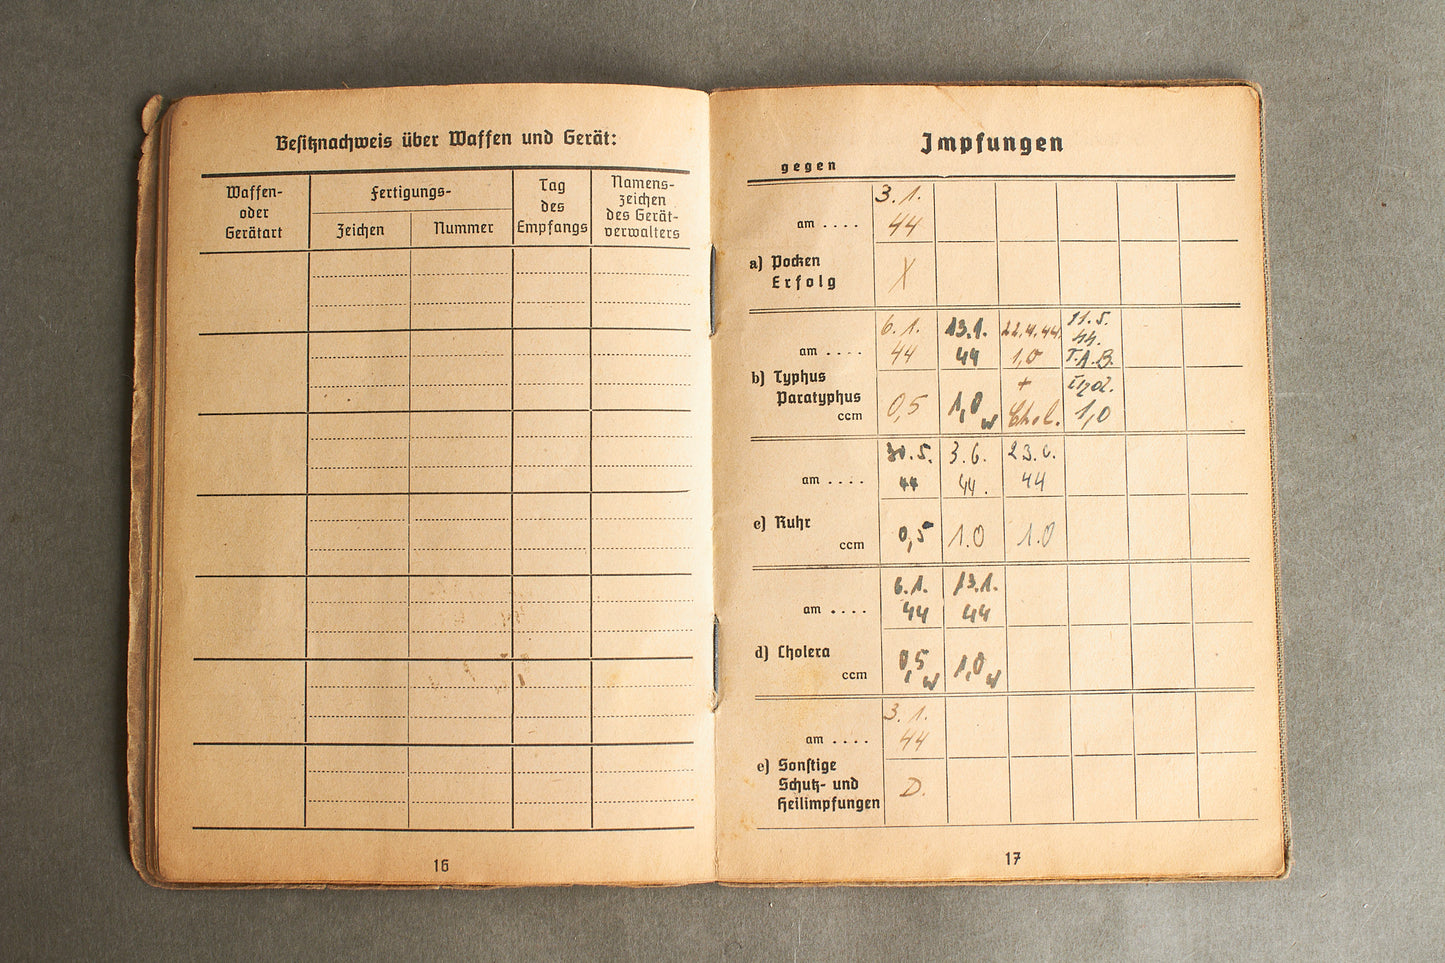 Besitznachweis über Waffen und Gerät:
Waffen-
oder
Gerätart
Fertigungs-
Zeichen
Nummer
Tag
des
Empfangs
Namens-
zeichen
des Gerät-
verwalters
16
Impfungen
gegen
3. 1.
am . . . . 44
a) Pocken
Erfolg X
6. 1. 13.1. 22.4.44. 11.5.
44.
am . . . . 44 44 1,0 T.A.B.
b) Typhus +
Paratyphus 0,5 1,0 w Chol. 1,0
ccm
30.5. 3.6. 23.6.
am . . . . 44 44. 44
c) Ruhr 0,5 1.0 1.0
ccm
6.1. 13.1.
am . . . . 44 44
d) Cholera 0,5 1,0
ccm w w
3. 1.
am . . . . 44
e) Sonstige
Schutz- und D.
Heilimpfungen
17